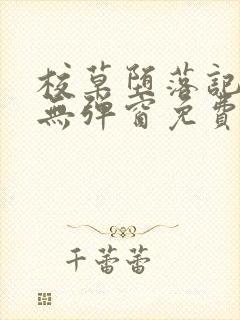 校草堕落記
無彈窗免費
千蕾蕾